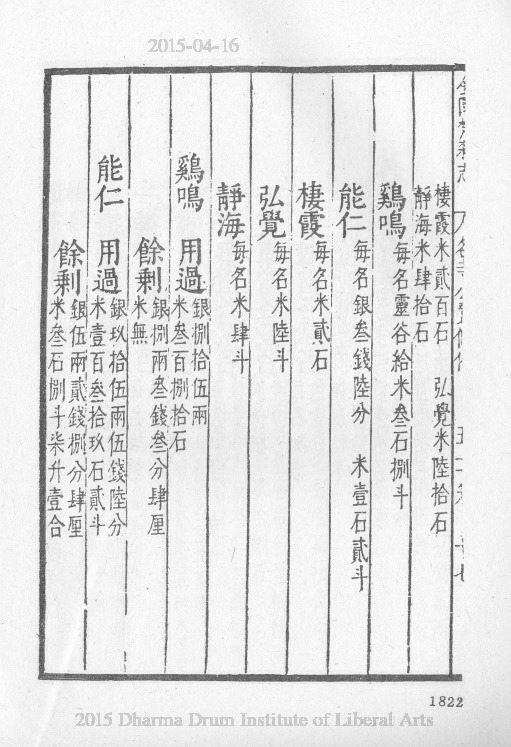 2015-04-16
棲霞米貳百石 弘覺米陸拾石
靜海米肆拾石
鷄鳴每名靈谷給米叁石捌斗
能仁每名銀叁錢陸分 米壹石貳斗
棲霞每名米貳石
弘覺每名米陸斗
靜海每名米肆斗
鷄鳴 用過銀捌拾伍兩
米叁百捌拾石
餘剩銀捌兩叁錢叁分肆厘
米無
能仁 用過銀玖拾伍兩伍錢陸分
米壹百叁拾玖石貳斗
餘剩銀伍兩貳錢捌分肆厘
米叁石捌斗柒升壹合
1822
2015 Dharma Drum Institute of Liberal Arts